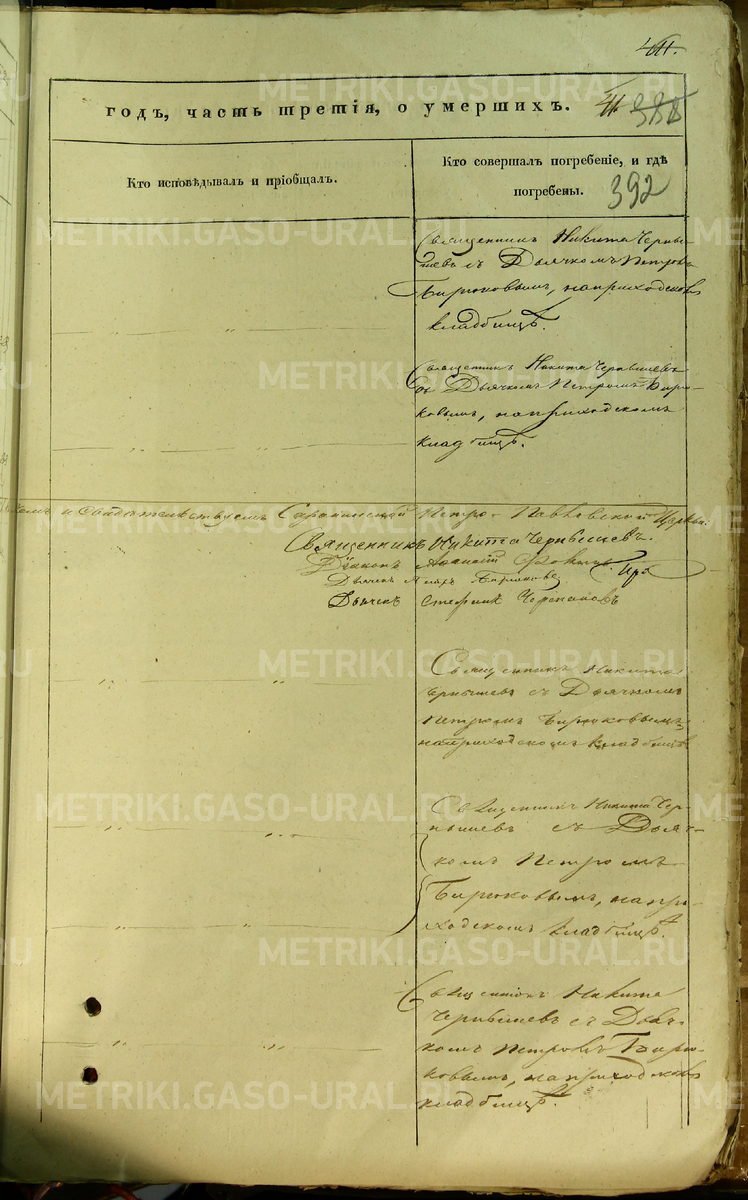 411.
METRIKI.GASO-URAL.RU
годъ, часть третія, о умершихъ.
41 388
Кто исповѣдывалъ и пріобщалъ.
Кто совершалъ погребеніе, и гдѣ
погребены.
392
Священникъ Никита Черны-
шевъ съ Дьячкомъ Петромъ
Бирюковымъ, на приходскомъ
кладбищѣ.
Священникъ Никита Чернышевъ
съ Дьячкомъ Петромъ Бирю-
ковымъ, на приходскомъ
кладбищѣ.
и свидѣтельствуемъ Петро-Павловской Церкви:
Священникъ Никита Чернышевъ.
Дьяконъ
Дьячекъ Бирюковъ
Дьячекъ Черепановъ
Священникъ Никита
Чернышевъ съ Дьячкомъ
Петромъ Бирюковымъ,
на приходскомъ кладбищѣ
Священникъ Никита Чер-
нышевъ съ Дьяч-
комъ Петромъ
Бирюковымъ, на при-
ходскомъ кладбищѣ.
Священникъ Никита
Чернышевъ съ Дьяч-
комъ Петромъ Бирю-
ковымъ, на приходскомъ
кладбищѣ.